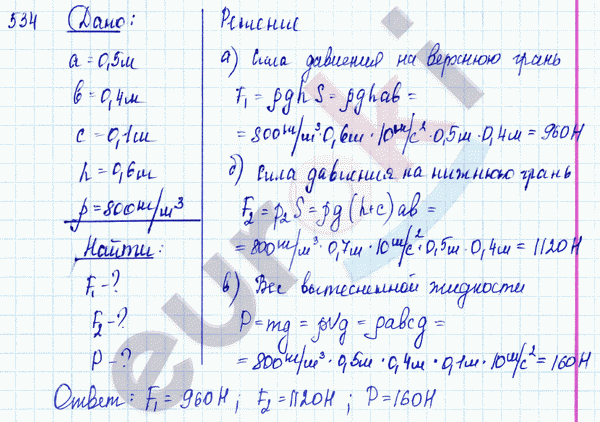 534 Дано:
a = 0,5м
в = 0,4м
c = 0,1м
h = 0,6м
ρ = 800кг/м³
Найти:
F₁ - ?
F₂ - ?
P - ?
Решение
а) Сила давления на верхнюю грань
F₁ = ρghS = ρghab =
= 800кг/м³·0,6м·10м/с²·0,5м·0,4м = 960Н
б) Сила давления на нижнюю грань
F₂ = p₂S = ρg(h+c)ab =
= 800кг/м³·0,7м·10м/с²·0,5м·0,4м = 1120Н
в) Вес вытесненной жидкости
P = mg = ρVg = ρabcg =
= 800кг/м³·0,5м·0,4м·0,1м·10м/с² = 160Н
Ответ: F₁ = 960Н; F₂ = 1120Н; P = 160Н
eurоki